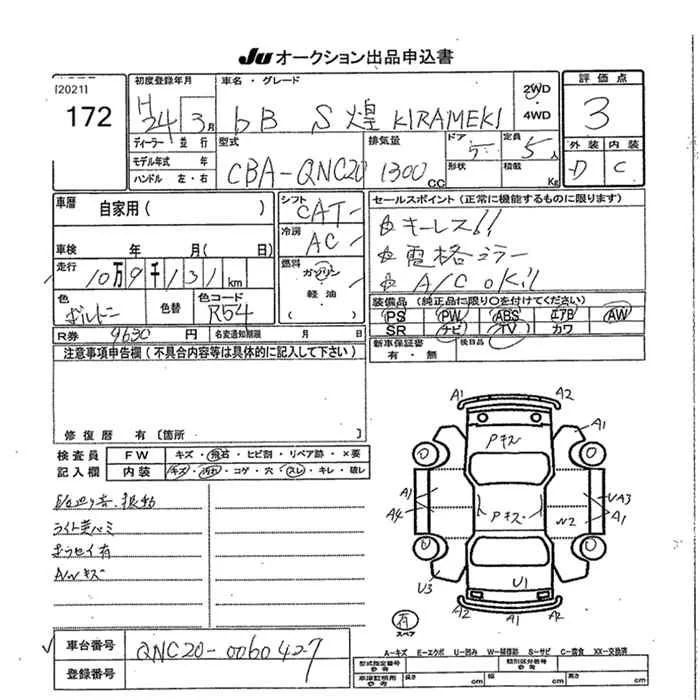 Ju オークション出品申込書
[2021]
172
初度登録年月
H
24年3月
車名・グレード
bB S 煌 KIRAMEKI
2WD
4WD
評価点
3
外装 内装
D C
ディーラー 並行
モデル年式 年
ハンドル 左・右
型式
CBA-QNC20
排気量
1300cc
ドア
5
定員
5人
形状
積載
Kg
車歴
自家用( )
車検 年 月( 日)
走行
10万9千131km
色
ボルドー
色替
色コード
R54
R券 9630円
名変通知期限 月 日
シフト
CAT
冷房
AC
燃料
ガソリン
軽油
( )
セールスポイント(正常に機能するものに限ります)
☆キーレス!!
☆電格ミラー
☆A/C oKil
装備品(純正品に限り○を付けてください)
PS PW ABS エアB AW
SR ナビ TV カワ
新車保証書
有・無
後日品
注意事項申告欄(不具合内容等は具体的に記入して下さい)
修復歴 有〔箇所 〕
検査員
記入欄
FW キズ・飛石・ヒビ割・リペア跡・×要
内装 キズ・汚れ・コゲ・穴・スレ・キレ・破レ
ライト黄バミ
ホコセイ有
A/Wキズ
A1 A2
Pキズ
A1
A1
A4
Pキズ
UA3
A1
W2
U3
U1
A2 A1 A2
有
スペア
A-キズ E-エクボ U-凹み W-補修跡 S-サビ C-腐食 XX-交換済
車台番号 QNC20-0060427
登録番号
型式指定番号
参考
類別区分番号
参考
車庫証明用
参考
長さ cm 幅 cm 高さ cm